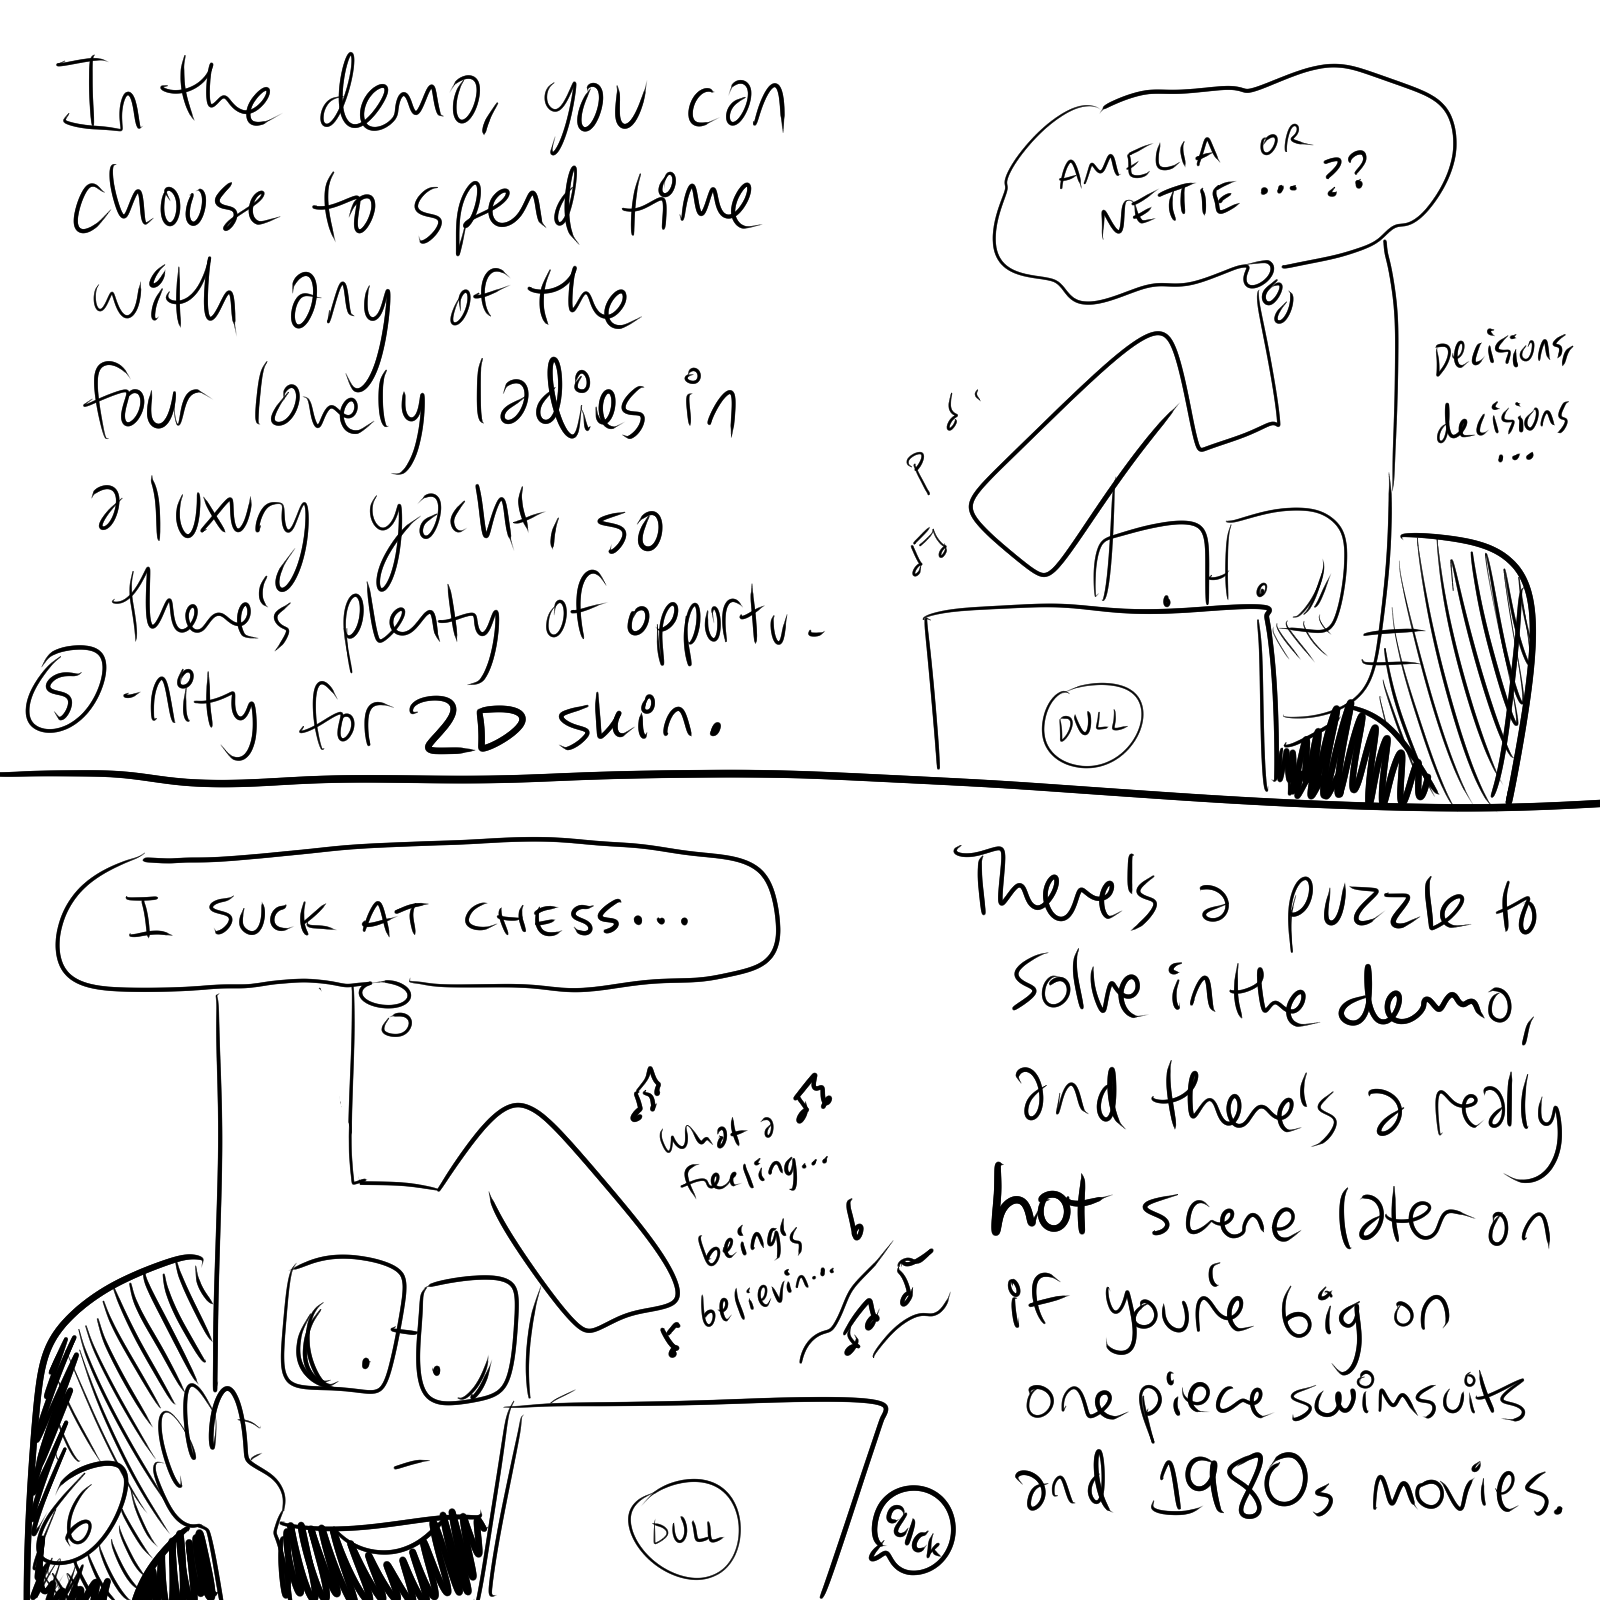 In the demo, you can
choose to spend time
with any of the
four lovely ladies in
a luxury yacht, so
there's plenty of opportu-
-nity for 2D skin.
5
AMELIA OR
NETTIE... ??
Decisions,
decisions
...
DULL
I SUCK AT CHESS...
What a
feeling...
being's
believin...
6
DULL
CLICK
There's a puzzle to
solve in the demo,
and there's a really
hot scene later on
if you're big on
one piece swimsuits
and 1980s movies.